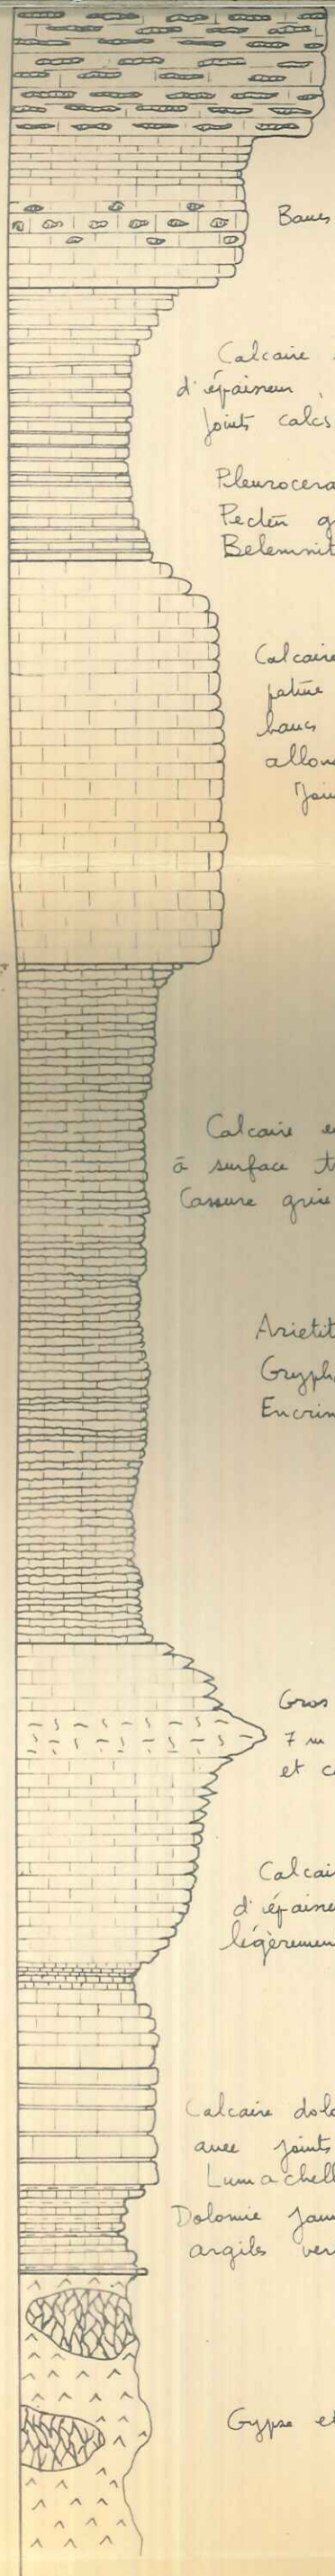 Bancs
Calcaire
d'épaisseur
Joints calcs
Pleurocera
Pecten g
Belemnit
Calcaire
patine
bancs
allon
Join
Calcaire en
à surface t
Cassure grise
Arietit
Gryph
Encrin
Gros
7 m
et c
Calcai
d'épaisse
légèremen
Calcaire dolo
avec joints
Lumachell
Dolomie jaun
argiles ver
Gypse et